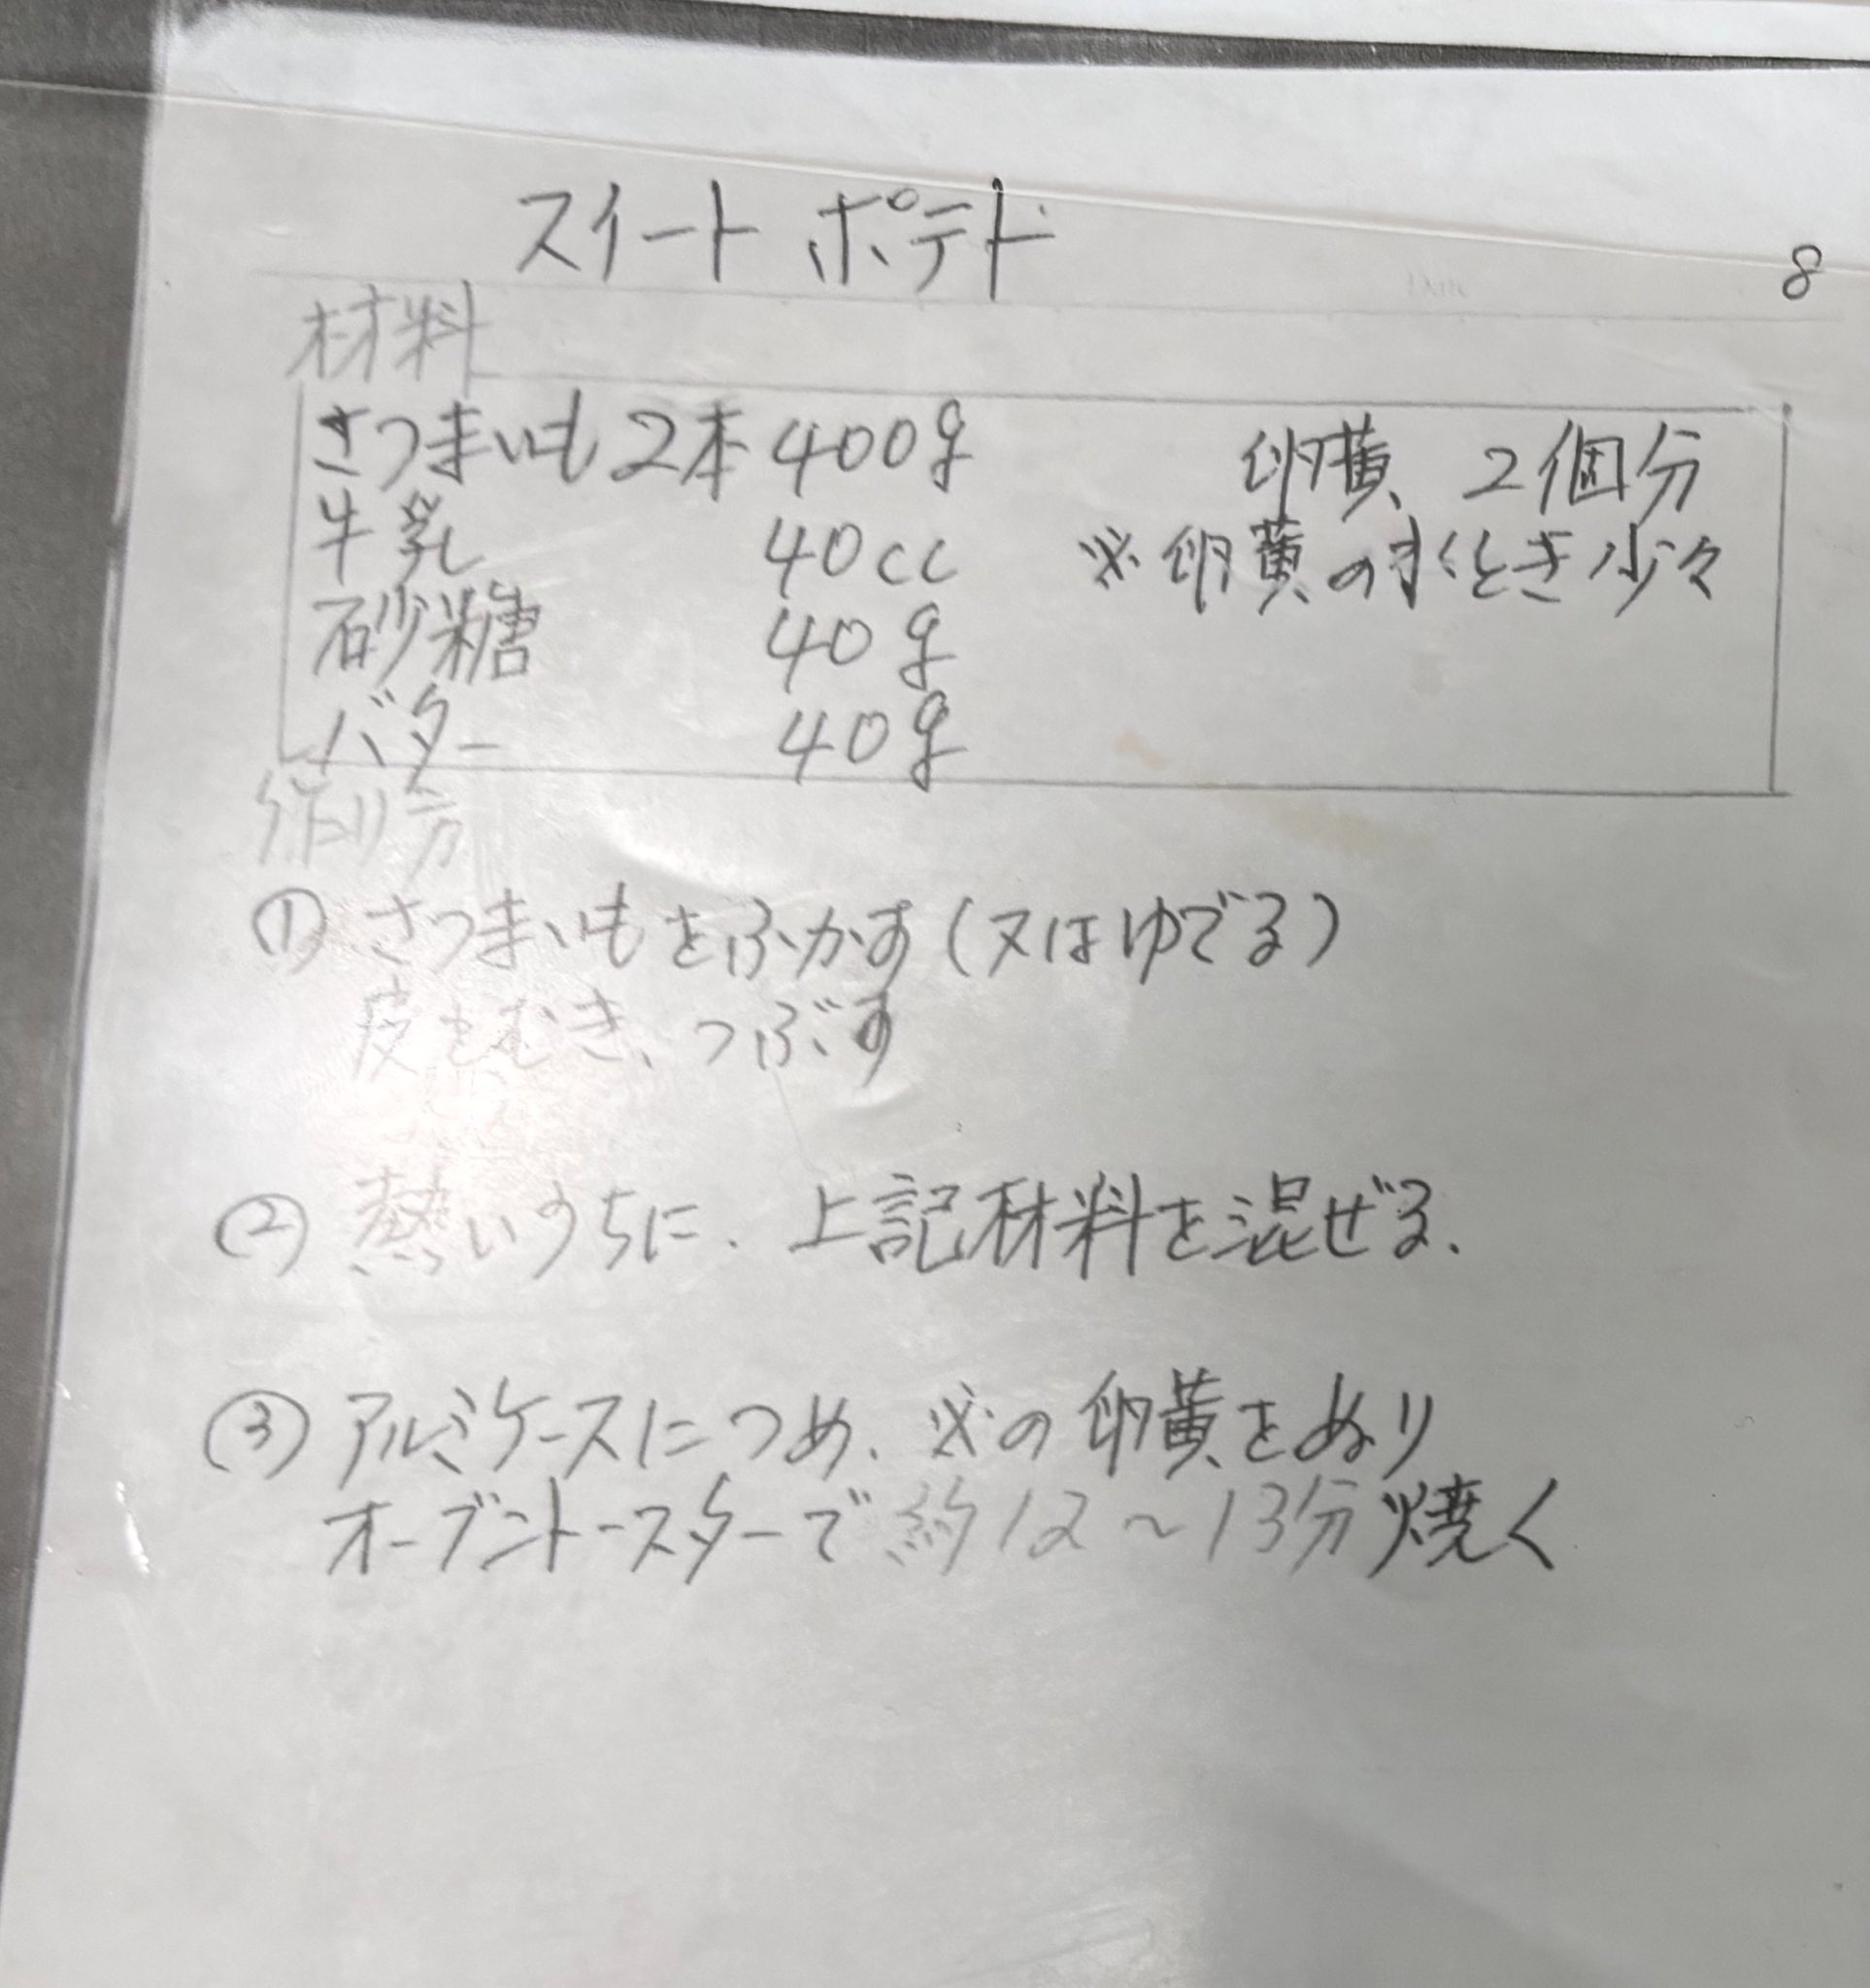 スイートポテト
8
Date
材料
さつまいも 2本 400g
卵黄 2個分
牛乳 40cc
※卵黄の水とき少々
砂糖 40g
バター 40g
作り方
① さつまいもをふかす(又はゆでる)
皮をむき、つぶす
② 熱いうちに、上記材料を混ぜる.
③ アルミケースにつめ、※の卵黄をぬり
オーブントースターで約12～13分焼く